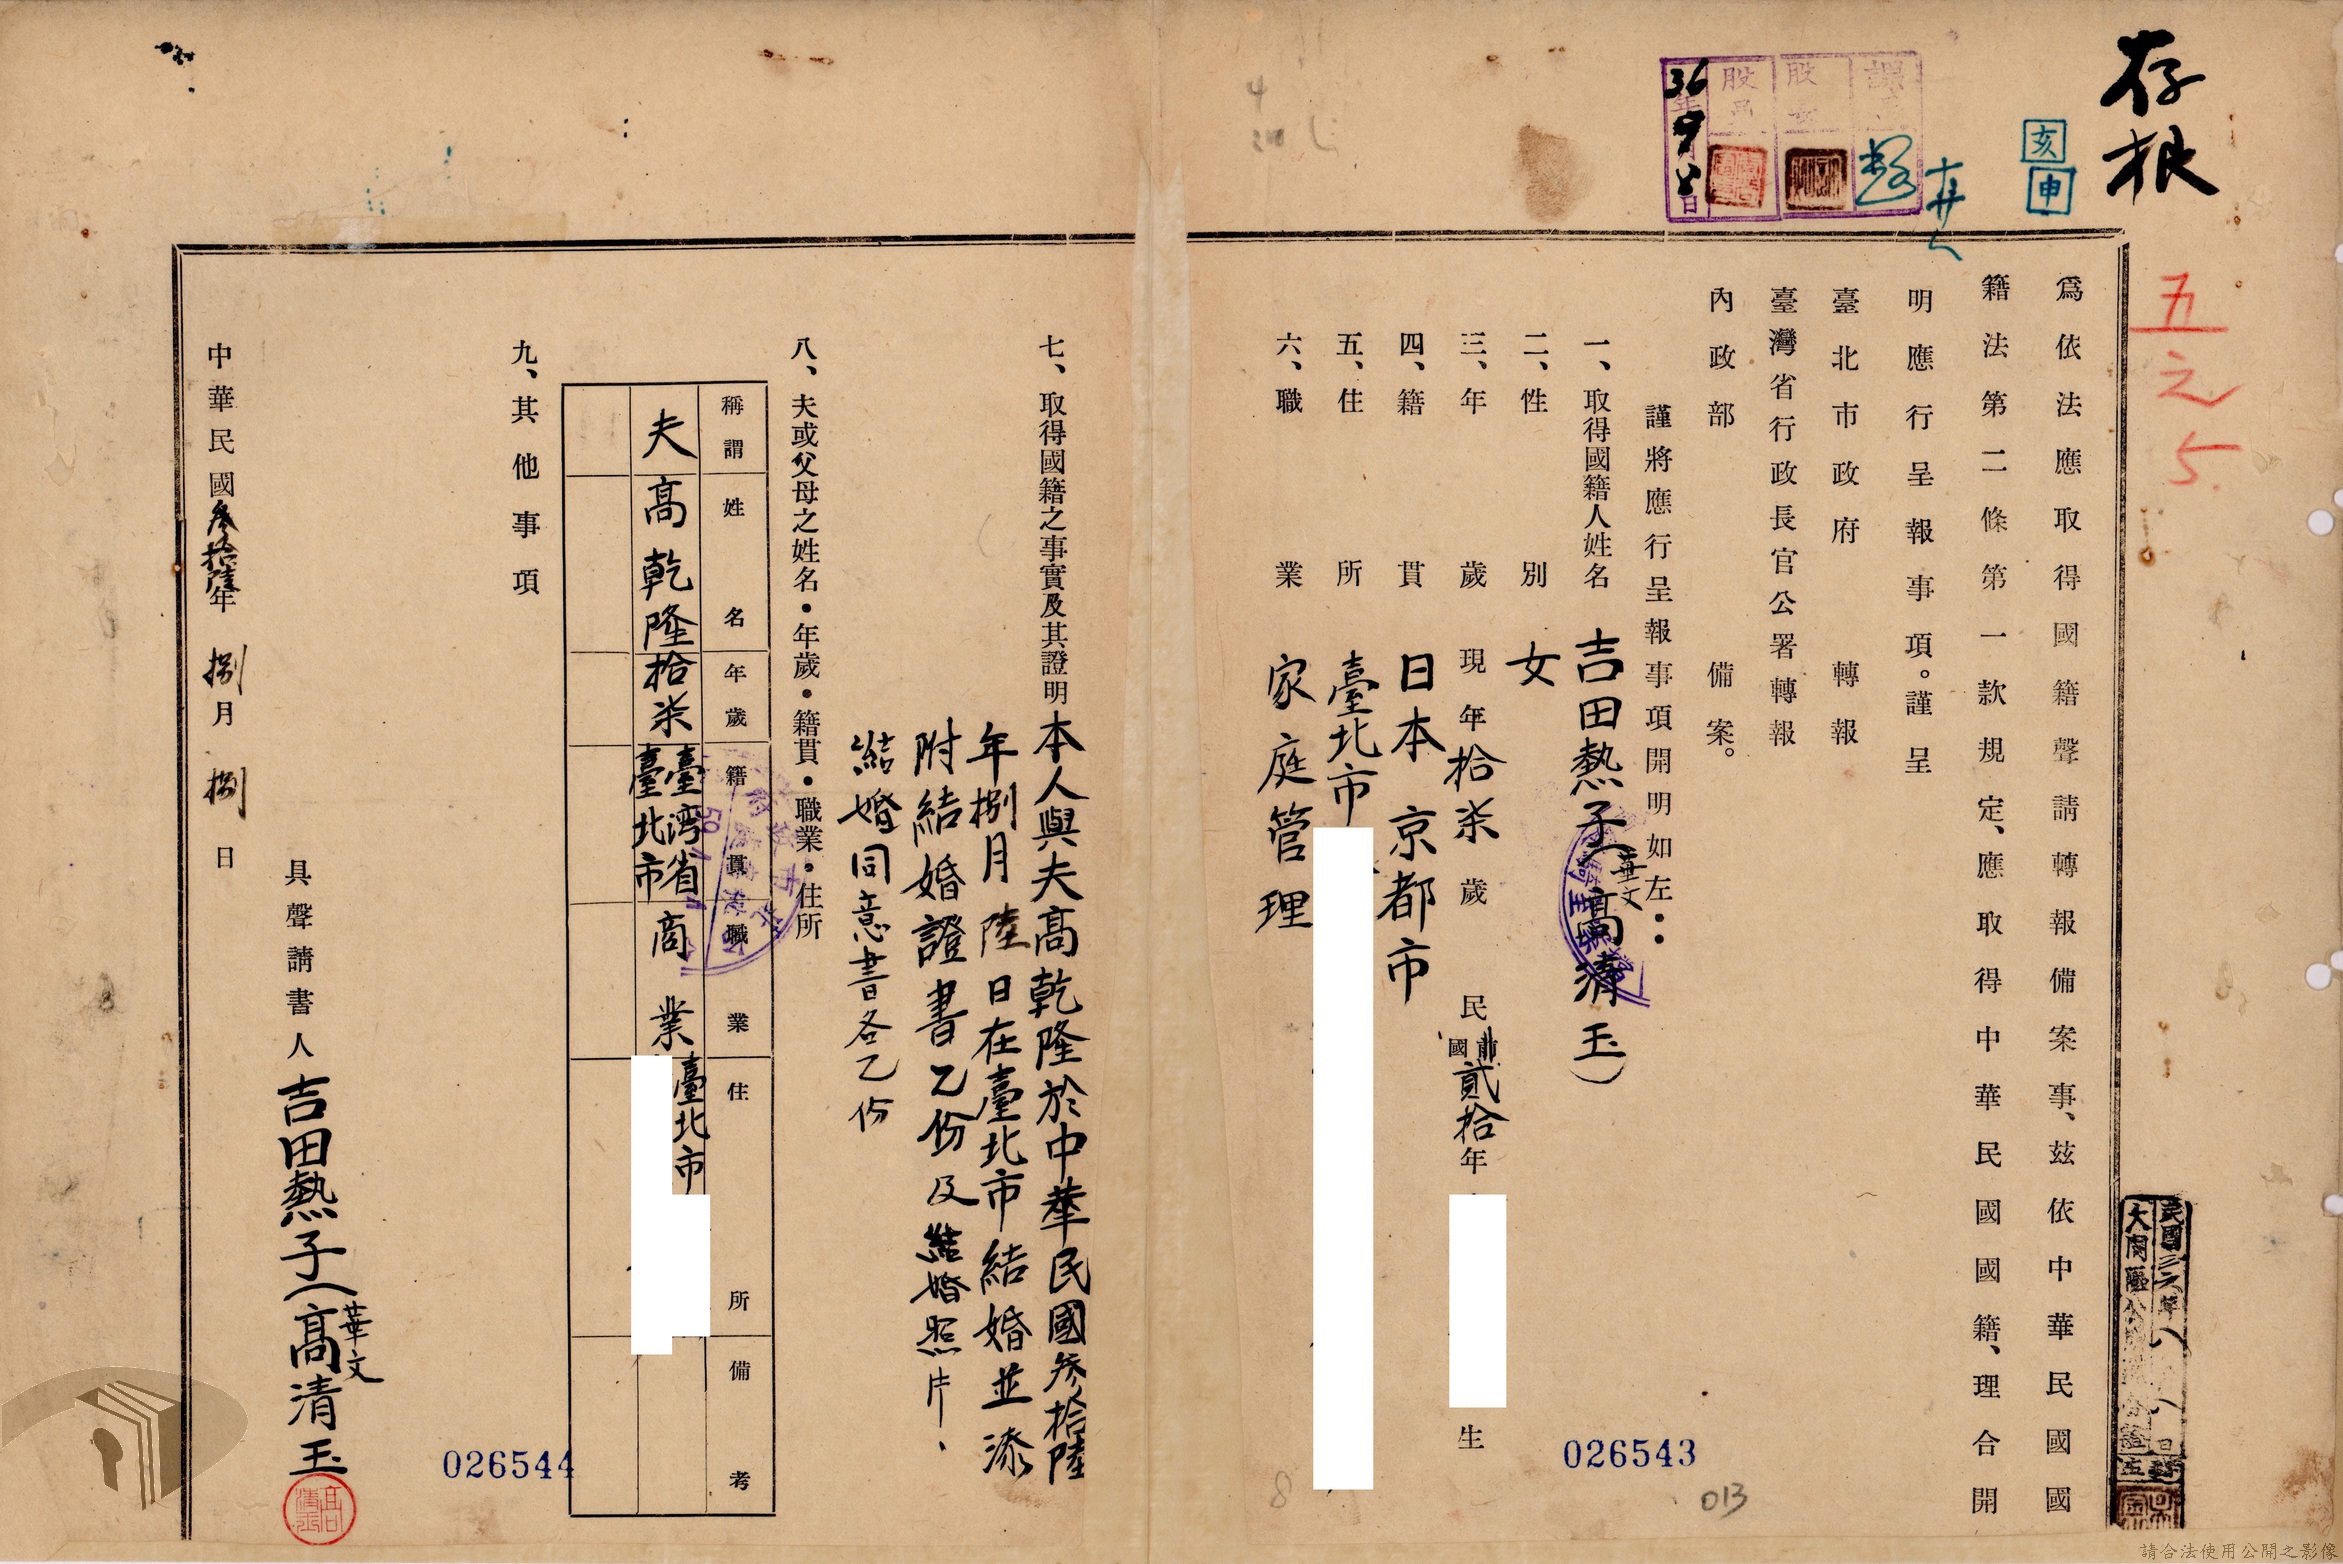 存根
亥
申
36年9月8日
五之5.
為依法應取得國籍聲請轉報備案事、茲依中華民國國
籍法第二條第一款規定、應取得中華民國國籍、理合開
明應行呈報事項。謹呈
臺北市政府 轉報
臺灣省行政長官公署轉報
內政部 備案。
謹將應行呈報事項開明如左:
一、取得國籍人姓名 吉田熱子(華文 高清玉)
二、性別 女
三、年歲 現年拾柒歲 民國前貳拾年 生
四、籍貫 日本京都市
五、住所 臺北市
六、職業 家庭管理
七、取得國籍之事實及其證明 本人與夫高乾隆於中華民國參拾陸
年捌月陸日在臺北市結婚並添
附結婚證書乙份及結婚照片、
結婚同意書各乙份
八、夫或父母之姓名•年歲•籍貫•職業•住所
稱謂 姓名 年歲 籍貫 職業 住所 備考
夫 高乾隆 拾柒 臺灣省臺北市 商業 臺北市
九、其他事項
具聲請書人 吉田熱子(華文 高清玉
中華民國參拾陸年捌月捌日
026543
026544
013
8
請合法使用公開之影像